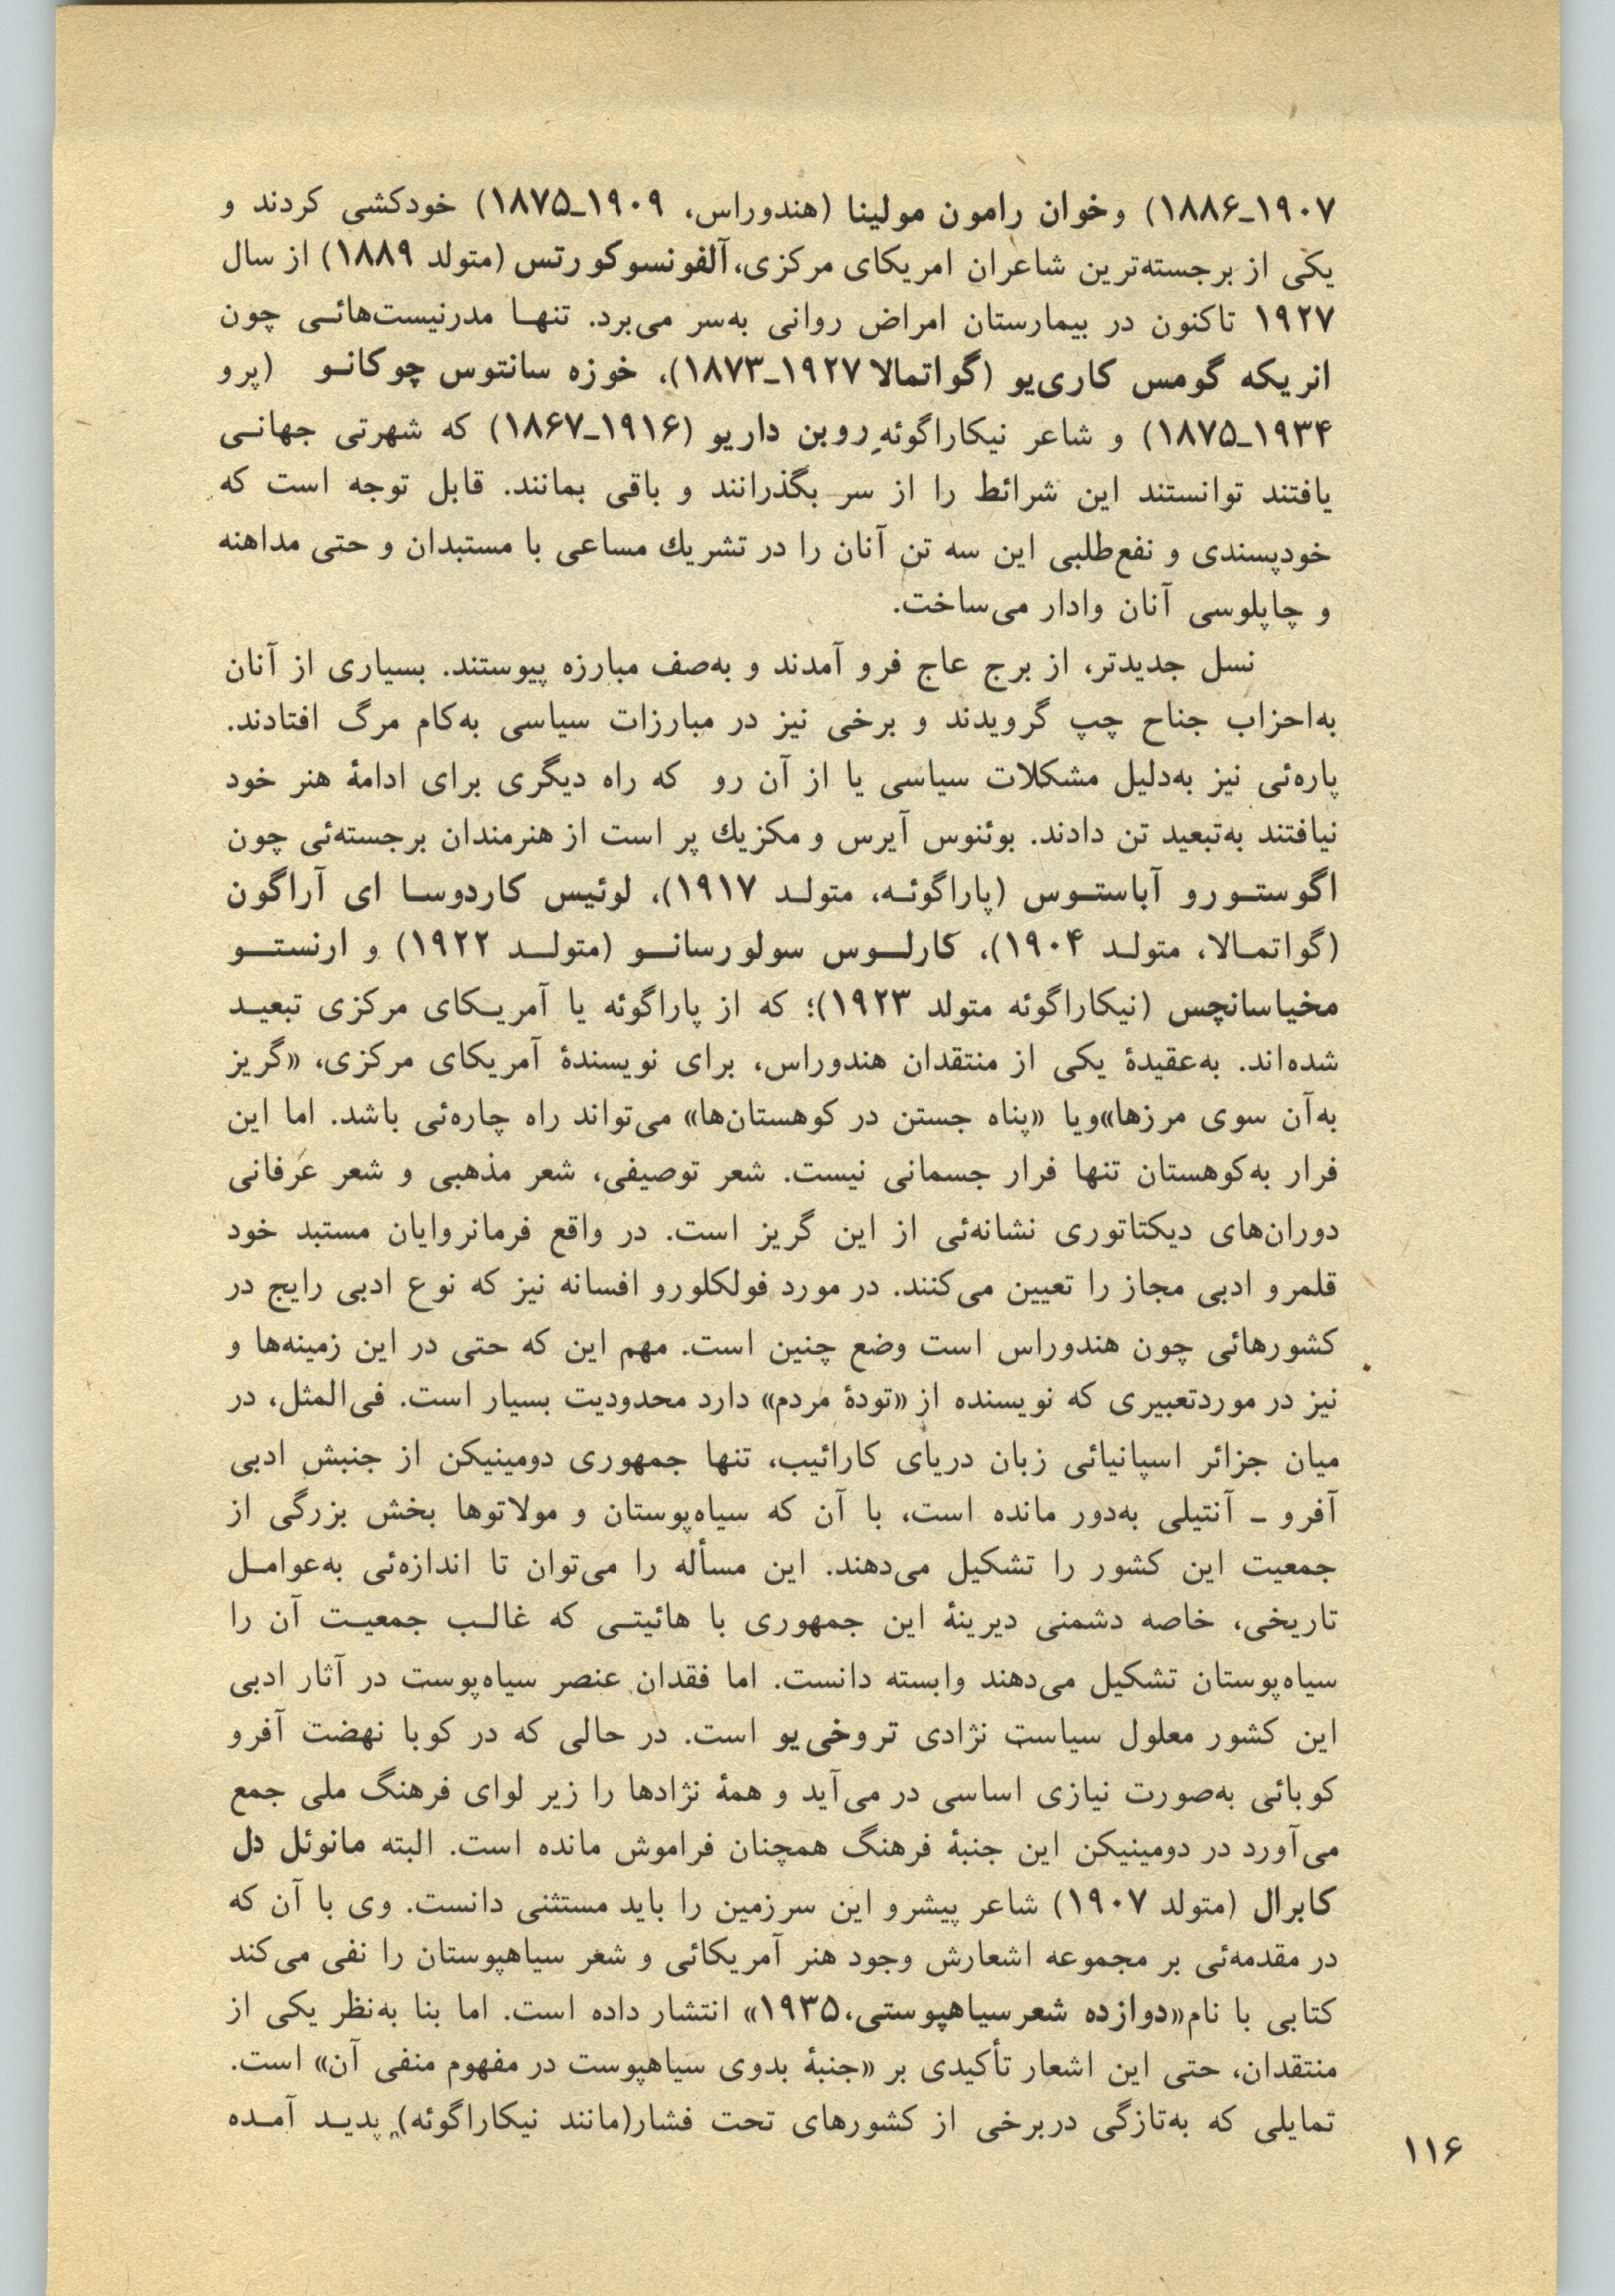 ۱۹۰۷ـ۱۸۸۶) وخوان رامون مولینا (هندوراس، ۱۹۰۹ـ۱۸۷۵) خودکشی کردند و
یکی از برجسته‌ترین شاعران امریکای مرکزی، آلفونسوکورتس (متولد ۱۸۸۹) از سال
۱۹۲۷ تاکنون در بیمارستان امراض روانی به‌سر می‌برد. تنهـا مدرنیست‌هائـی چون
انریکه گومس کاری‌یو (گواتمالا ۱۹۲۷ـ۱۸۷۳)، خوزه سانتوس چوکانـو (پرو
۱۹۳۴ـ۱۸۷۵) و شاعر نیکاراگوئهِ روبن داریو (۱۹۱۶ـ۱۸۶۷) که شهرتی جهانـی
یافتند توانستند این شرائط را از سر بگذرانند و باقی بمانند. قابل توجه است که
خودپسندی و نفع‌طلبی این سه تن آنان را در تشریك مساعی با مستبدان و حتی مداهنه
و چاپلوسی آنان وادار می‌ساخت.
نسل جدیدتر، از برج عاج فرو آمدند و به‌صف مبارزه پیوستند. بسیاری از آنان
به‌احزاب جناح چپ گرویدند و برخی نیز در مبارزات سیاسی به‌کام مرگ افتادند.
پاره‌ئی نیز به‌دلیل مشکلات سیاسی یا از آن رو که راه دیگری برای ادامهٔ هنر خود
نیافتند به‌تبعید تن دادند. بوئنوس آیرس و مکزیك پر است از هنرمندان برجسته‌ئی چون
اگوستـورو آباستـوس (پاراگوئـه، متولـد ۱۹۱۷)، لوئیس کاردوسـا ای آراگون
(گواتمـالا، متولـد ۱۹۰۴)، کارلـوس سولورسانـو (متولـد ۱۹۲۲) و ارنستـو
مخیاسانچس (نیکاراگوئه متولد ۱۹۲۳)؛ که از پاراگوئه یا آمریـکای مرکزی تبعیـد
شده‌اند. به‌عقیدهٔ یکی از منتقدان هندوراس، برای نویسندهٔ آمریکای مرکزی، «گریز
به‌آن سوی مرزها»ویا «پناه جستن در کوهستان‌ها» می‌تواند راه چاره‌ئی باشد. اما این
فرار به‌کوهستان تنها فرار جسمانی نیست. شعر توصیفی، شعر مذهبی و شعر عرفانی
دوران‌های دیکتاتوری نشانه‌ئی از این گریز است. در واقع فرمانروایان مستبد خود
قلمرو ادبی مجاز را تعیین می‌کنند. در مورد فولکلورو افسانه نیز که نوع ادبی رایج در
کشورهائی چون هندوراس است وضع چنین است. مهم این که حتی در این زمینه‌ها و
نیز در موردتعبیری که نویسنده از «تودهٔ مردم» دارد محدودیت بسیار است. فی‌المثل، در
میان جزائر اسپانیائی زبان دریای کارائیب، تنها جمهوری دومینیکن از جنبش ادبی
آفرو ـ آنتیلی به‌دور مانده است، با آن که سیاه‌پوستان و مولاتوها بخش بزرگی از
جمعیت این کشور را تشکیل می‌دهند. این مسأله را می‌توان تا اندازه‌ئی به‌عوامـل
تاریخی، خاصه دشمنی دیرینهٔ این جمهوری با هائیتـی که غالـب جمعیـت آن را
سیاه‌پوستان تشکیل می‌دهند وابسته دانست. اما فقدان عنصر سیاه‌پوست در آثار ادبی
این کشور معلول سیاست نژادی تروخی‌یو است. در حالی که در کوبا نهضت آفرو
کوبائی به‌صورت نیازی اساسی در می‌آید و همهٔ نژادها را زیر لوای فرهنگ ملی جمع
می‌آورد در دومینیکن این جنبهٔ فرهنگ همچنان فراموش مانده است. البته مانوئل دل
کابرال (متولد ۱۹۰۷) شاعر پیشرو این سرزمین را باید مستثنی دانست. وی با آن که
در مقدمه‌ئی بر مجموعه اشعارش وجود هنر آمریکائی و شعر سیاهپوستان را نفی می‌کند
کتابی با نام«دوازده شعرسیاهپوستی،۱۹۳۵» انتشار داده است. اما بنا به‌نظر یکی از
منتقدان، حتی این اشعار تأکیدی بر «جنبهٔ بدوی سیاهپوست در مفهوم منفی آن» است.
تمایلی که به‌تازگی دربرخی از کشورهای تحت فشار(مانند نیکاراگوئه) پدیـد آمـده
۱۱۶